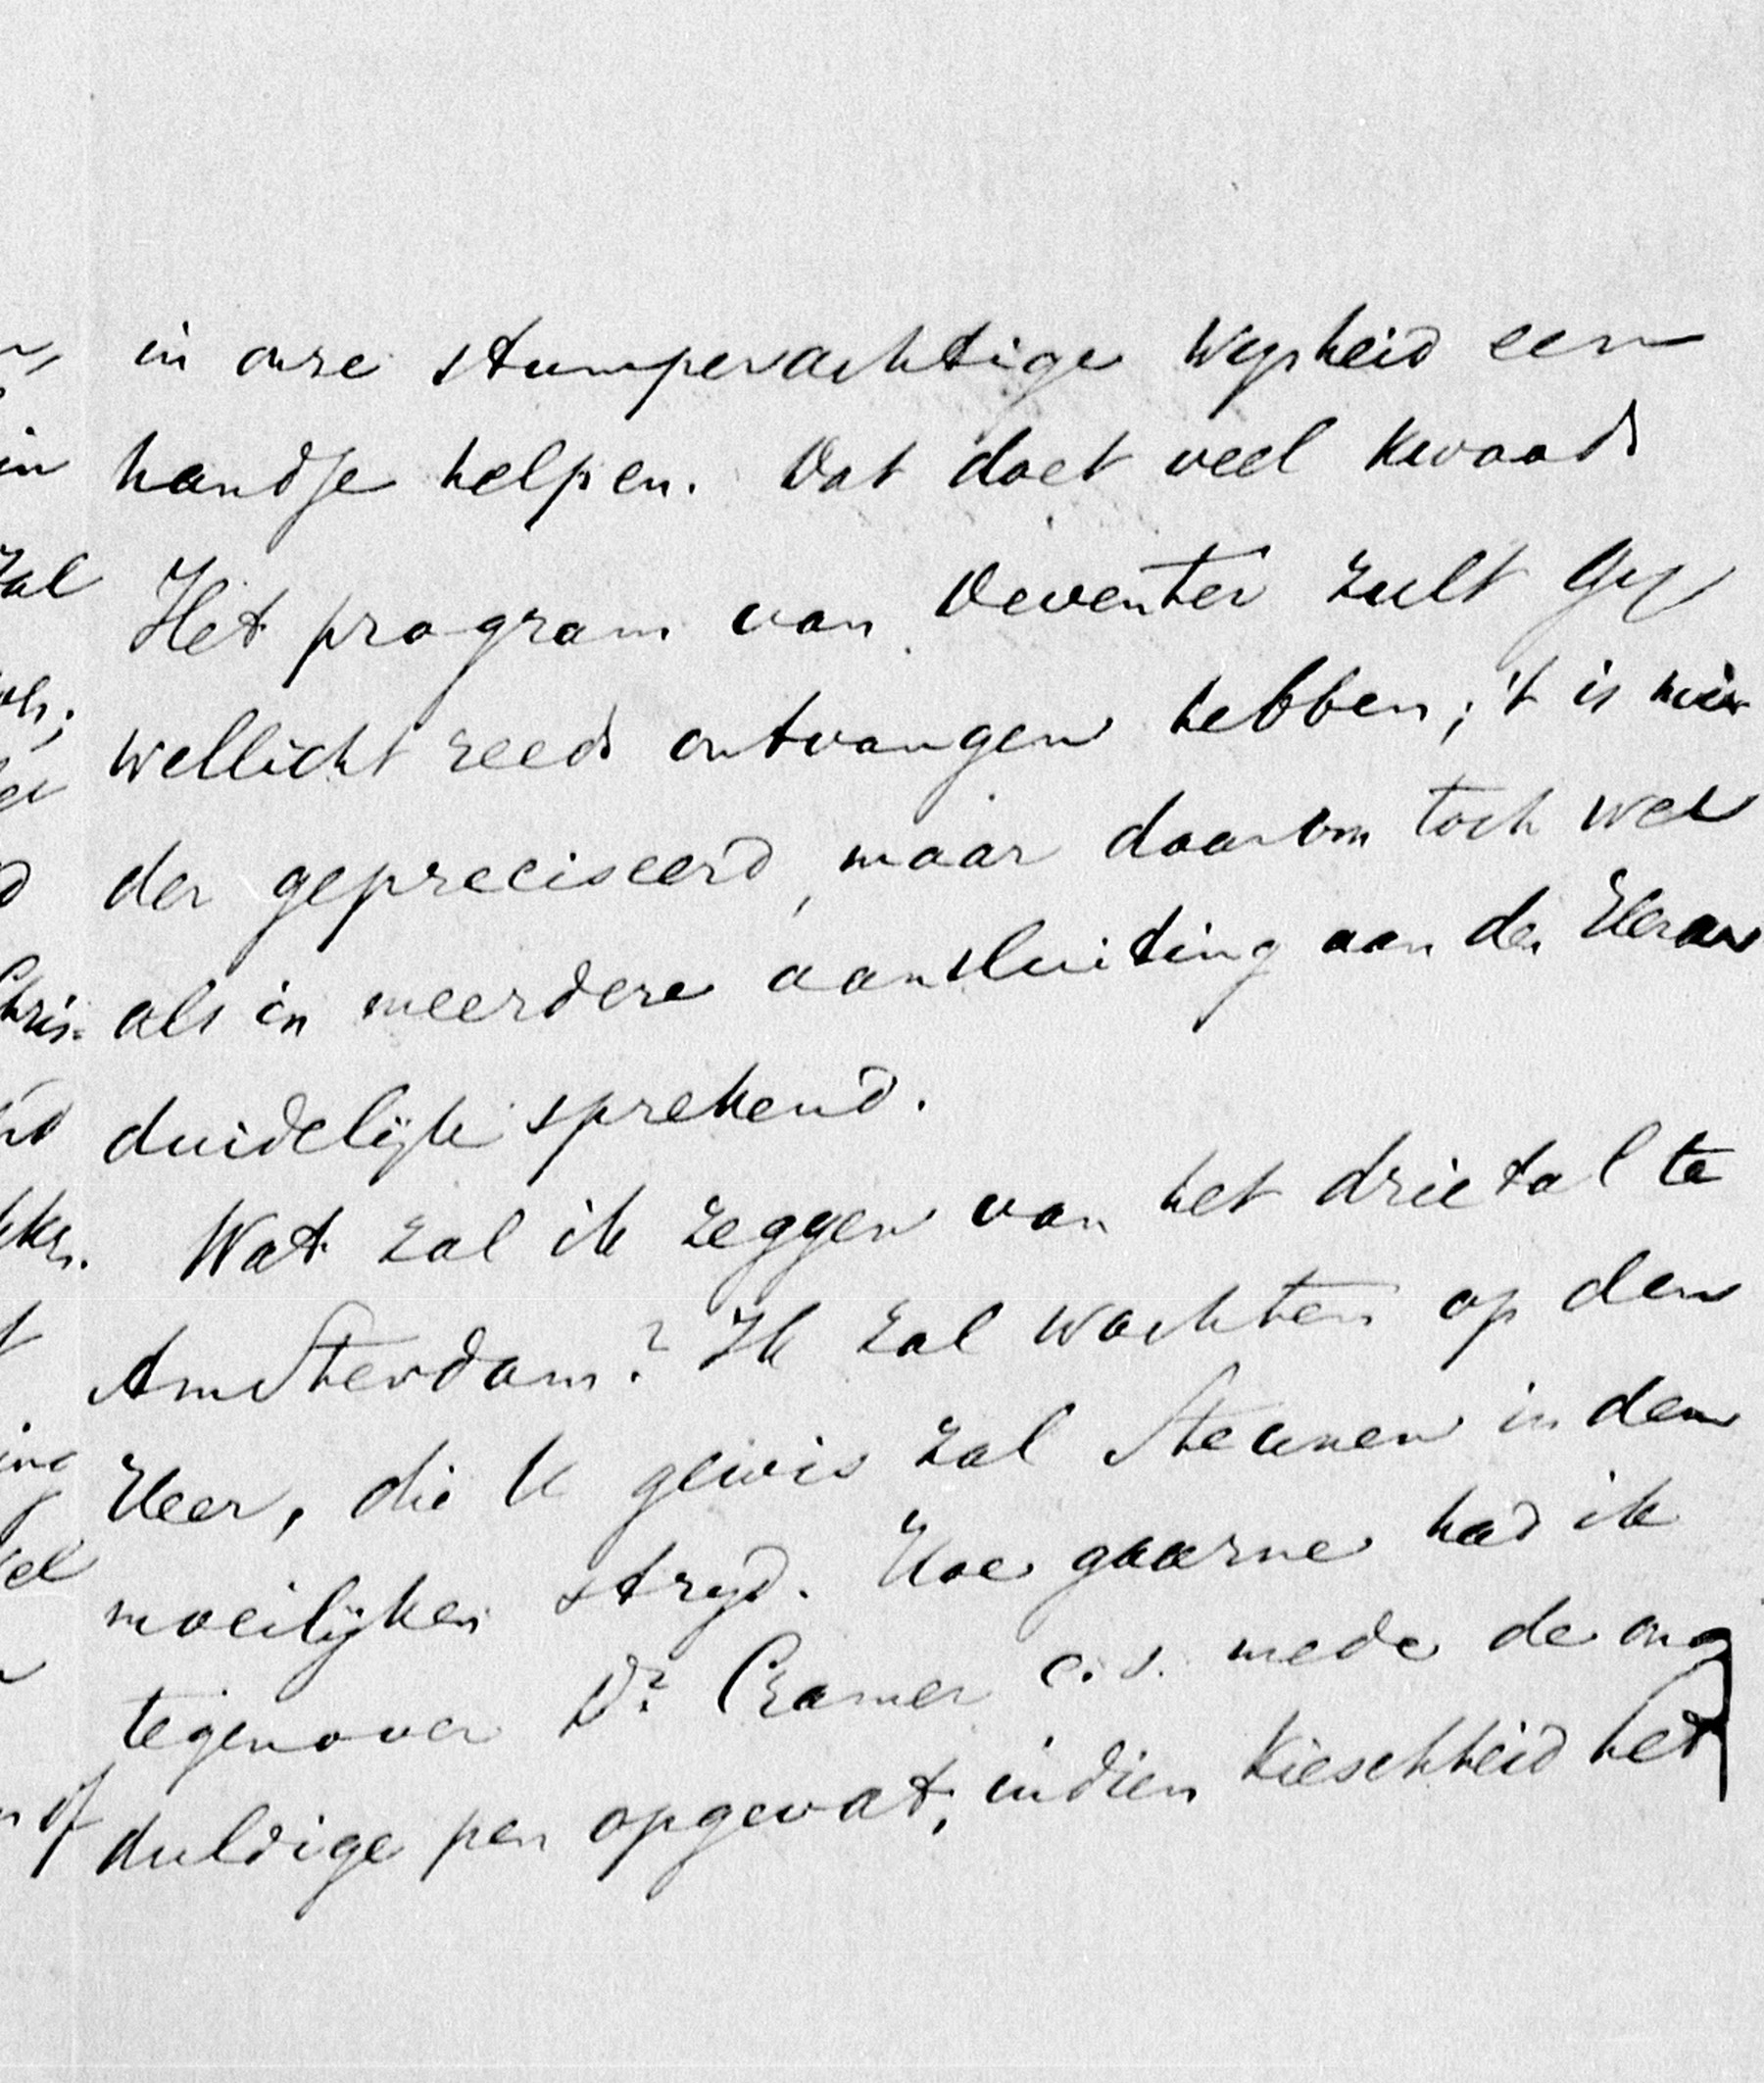 in onze stumperachtige wijsheid een
handje helpen. Dat doet veel kwaad.
Het program van Deventer zult Gij
wellicht reeds ontvangen hebben; 't is min
der gepreciseerd, maar daarom toch wel
als in meerdere aansluiting aan de Heraut
duidelijk sprekend.
Wat zal ik zeggen van het drietal te
Amsterdam? Ik zal wachten op den
Heer, die U gewis zal steunen in den
moeilijken strijd. Hoe gaarne had ik
tegenover Dr. Cramer c.s. mede de ong
duldige pen opgevat, indien kieschheid het